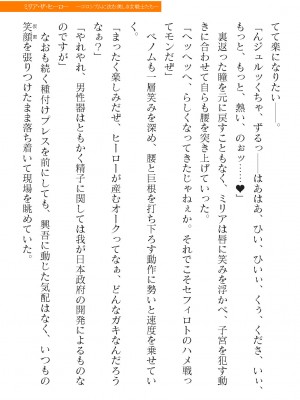 ミリア・ザ・ヒーロー
てて楽になりたい――。
「んジェルッくちゃ、ずるっ――はあはあ、ひい、ひいぃ、くぅ、くださ、いぃ、
もっと、もっと、熱い、のぉッ……♥」
裏返った瞳を元に戻すこともなく、ミリアは唇に笑みを浮かべ、子宮を犯す動
きに合わせて自らも腰を突き上げていった。
「ヘッヘッヘ、らしくなってきたじゃねぇか。それでこそセフィロトのハメ戦っ
てモンだぜ」
ベノムも一層笑みを深め、腰と巨根を打ち下ろす動作に勢いと速度を乗せてい
く。
「まったく楽しみだぜ、ヒーローが産むオークってなぁ、どんなガキなんだろう
なぁ？」
「やれやれ、男性器はともかく精子に関しては我が日本政府の開発によるものな
のですが」
なおも続く種付けプレスを前にしても、興吾に動じた気配はなく、いつもの
笑顔を張りつけたまま落ち着いて現場を眺めていた。